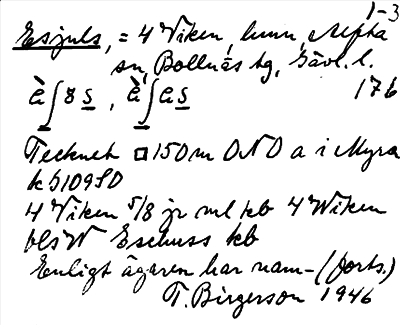 1-3
Esjuls, = 4 Viken, hmn, Alfta
sn, Bollnäs tg, Gävl. l.
176
Tecknet □ 150 m ONO a i Myra
k 5109 SO
4 Viken 5/8 jr ml kb 4 Wiken
bl s W Eschuss kb
Enligt ägaren har nam- (forts.)
T. Birgerson 1946